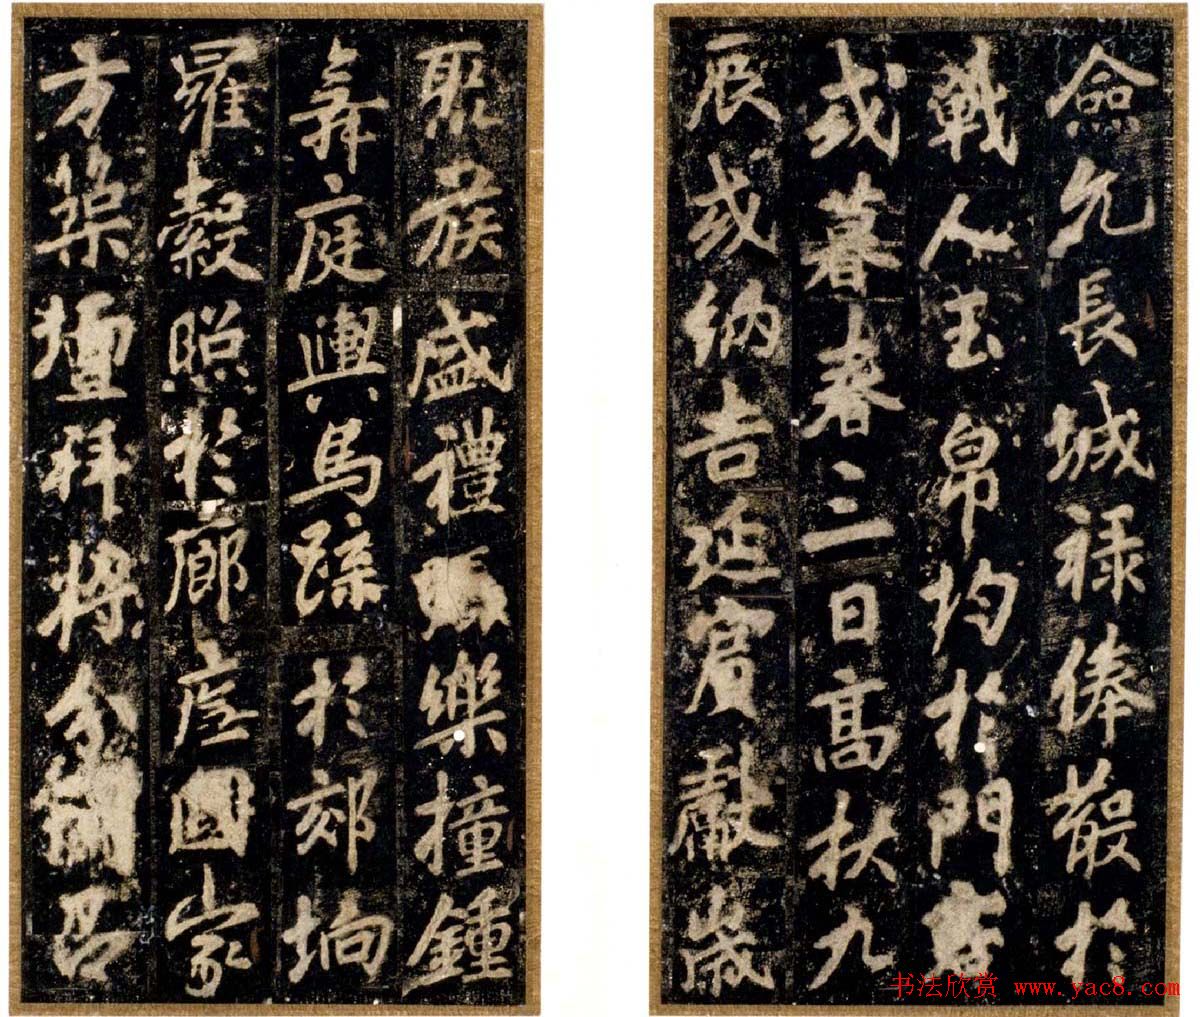 僉允長城禄俸散於
戰人玉帛均於門
或暮春三日高秋九
辰或納吉延賓獻歲
聚族盛禮樂撞鍾
舞庭輿馬疏於郊坰
羅縠照於廊廡國家
方築壇拜將分召
书法欣赏 www.yac8.com